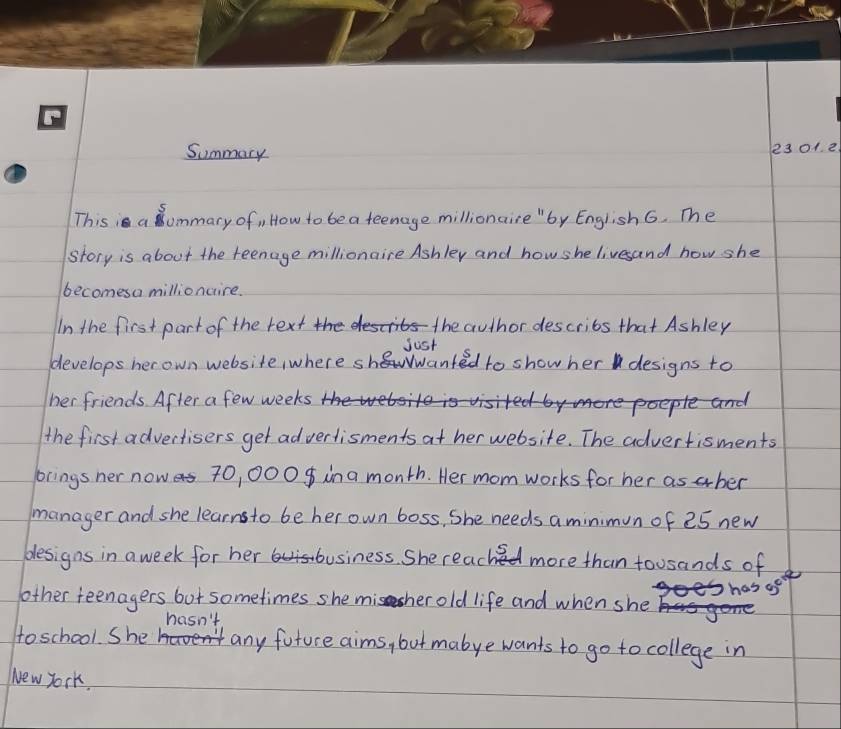 Summary
23 01.2
This is a Summary of „How to be a teenage millionaire" by English G. The
story is about the teenage millionaire Ashley and how she lives and how she
becomes a millionaire.
In the first part of the text the describs the author describs that Ashley
just
develops her own website, where she wants to show her designs to
her friends. After a few weeks the website is visited by more poeple and
the first advertisers get advertisments at her website. The advertisments
brings her now as 70,000$ in a month. Her mom works for her as a her
manager and she learns to be her own boss. She needs a minimun of 25 new
designs in a week for her buis business. She reaches more than tousands of
goes has gone
other teenagers but sometimes she misses her old life and when she has gone
hasn't
to school. She haven't any future aims, but mabye wants to go to college in
New York.